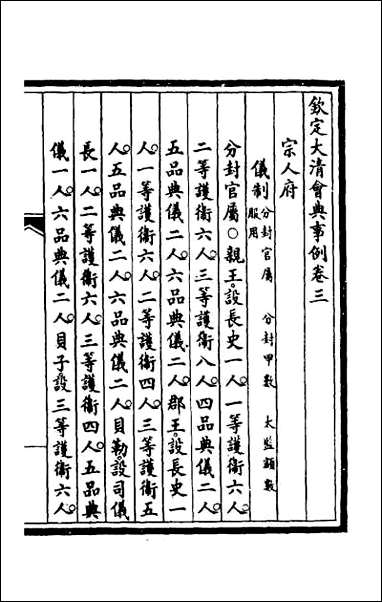 欽定大清會典事例卷三
宗人府
儀制分封官屬 分封甲數 太監額數
服用
分封官屬○親王設長史一人一等護衛六人
二等護衛六人三等護衛八人四品典儀二人
五品典儀二人六品典儀二人郡王設長史一
人一等護衛六人二等護衛四人三等護衛五
人五品典儀二人六品典儀二人貝勒設司儀
長一人二等護衛六人三等護衛四人五品典
儀一人六品典儀二人貝子設三等護衛六人